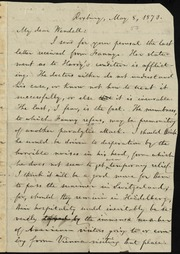 Roxbury, May 8, 1878.
My dear Wendell:
I send for your perusal the last
letter received from Franky. Her state-
ment as to Harry's condition is afflict-
ing. The doctors either do not understand
his case, or know not how to treat it
successfully, or else it is incurable.
The last, I fear, is the fact. The numbness
to which Franky refers, may be
another paralytic attack. I should think
he would be driven to desperation by the
horrible noises in his head, from which
he does not seem to get temporary relief.
I think it will be a good move for them
to pass the summer in Switzerland,
for, should they remain in Heidelberg,
their hospitality would inevitably be
by the immense number
of American visitors going to or com-
ing from Vienna visiting that place